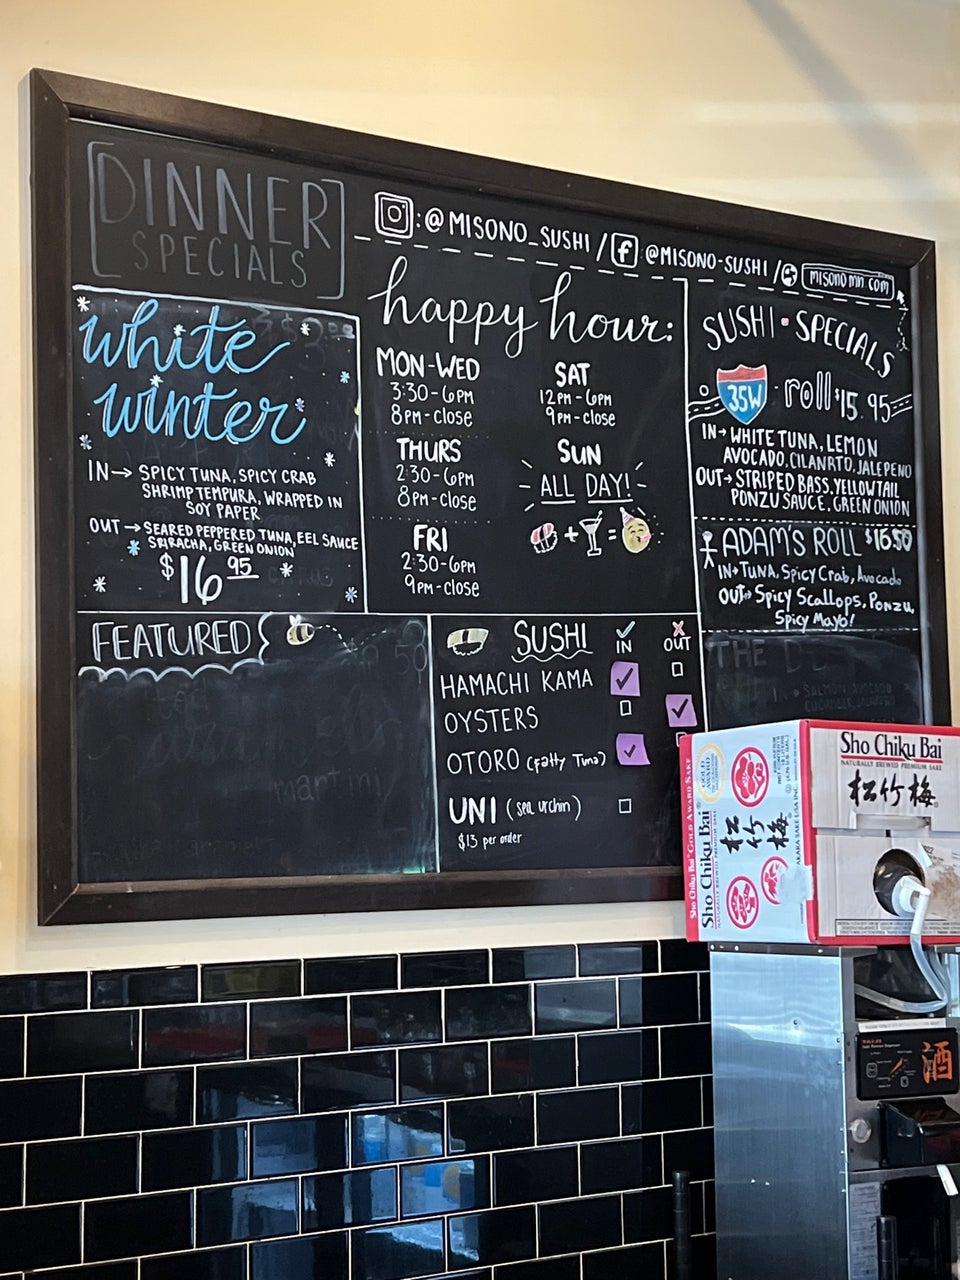 DINNER
SPECIALS
: @MISONO_SUSHI / @MISONO-SUSHI / misonomn.com
white
winter
IN → SPICY TUNA, SPICY CRAB
SHRIMP TEMPURA, WRAPPED IN
SOY PAPER
OUT → SEARED PEPPERED TUNA, EEL SAUCE
SRIRACHA, GREEN ONION
$16 95
happy hour:
MON-WED
3:30-6PM
8PM-close
THURS
2:30-6pm
8PM-close
FRI
2:30-6pm
9pm-close
SAT
12PM-6PM
9PM-close
SUN
ALL DAY!
+ =
SUSHI • SPECIALS
35W roll $15.95
IN → WHITE TUNA, LEMON
AVOCADO, CILANRTO, JALEPENO
OUT → STRIPED BASS, YELLOWTAIL
PONZU SAUCE, GREEN ONION
ADAM'S ROLL $16.50
IN → TUNA, Spicy Crab, Avocado
OUT → Spicy Scallops, Ponzu,
Spicy Mayo!
THE
IN → SALMON, AVOCADO
FEATURED
martini
SUSHI IN OUT
HAMACHI KAMA
OYSTERS
OTORO (Fatty Tuna)
UNI (sea urchin)
$13 per order
Sho Chiku Bai
NATURALLY BREWED PREMIUM SAKE
松竹梅
Sho Chiku Bai
松竹梅
Sho Chiku Bai GOLD AWARD SAKE
GOLD
AWARD
TAKARA SAKE USA INC.
酒